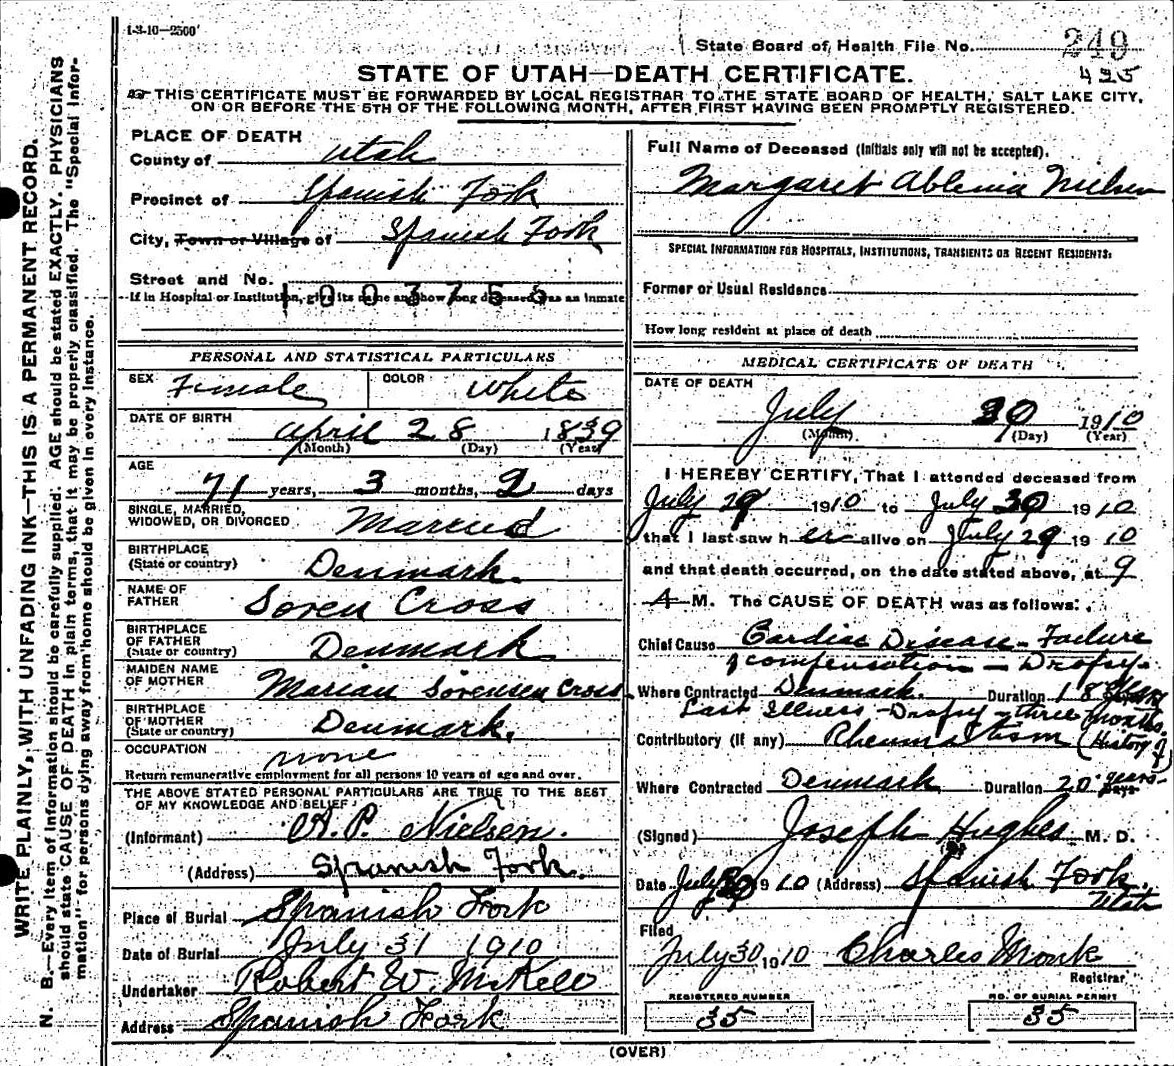 1-3-10-2500
State Board of Health File No. 249
425
STATE OF UTAH—DEATH CERTIFICATE.
THIS CERTIFICATE MUST BE FORWARDED BY LOCAL REGISTRAR TO THE STATE BOARD OF HEALTH, SALT LAKE CITY,
ON OR BEFORE THE 5TH OF THE FOLLOWING MONTH, AFTER FIRST HAVING BEEN PROMPTLY REGISTERED.
WRITE PLAINLY, WITH UNFADING INK—THIS IS A PERMANENT RECORD.
N. B.—Every item of information should be carefully supplied. AGE should be stated EXACTLY. PHYSICIANS
should state CAUSE OF DEATH in plain terms, that it may be properly classified. The "Special Infor-
mation" for persons dying away from home should be given in every instance.
PLACE OF DEATH
County of Utah
Precinct of Spanish Fork
City, Town or Village of Spanish Fork
Street and No.
1003755
If in Hospital or Institution, give its name and show long deceased was an inmate
PERSONAL AND STATISTICAL PARTICULARS
SEX Female COLOR White
DATE OF BIRTH
April 28 1839
(Month) (Day) (Year)
AGE
71 years, 3 months, 2 days
SINGLE, MARRIED,
WIDOWED, OR DIVORCED Married
BIRTHPLACE
(State or country) Denmark.
NAME OF
FATHER Soren Cross
BIRTHPLACE
OF FATHER
(State or country) Denmark
MAIDEN NAME
OF MOTHER Marian Sorensen Cross
BIRTHPLACE
OF MOTHER
(State or country) Denmark.
OCCUPATION none
Return remunerative employment for all persons 10 years of age and over.
THE ABOVE STATED PERSONAL PARTICULARS ARE TRUE TO THE BEST
OF MY KNOWLEDGE AND BELIEF
(Informant) P. Nielsen.
(Address) Spanish Fork.
Place of Burial Spanish Fork
Date of Burial July 31 1910
Undertaker Robert W. McKell
Address Spanish Fork
Full Name of Deceased (Initials only will not be accepted).
Margaret Ablenia Nielsen
SPECIAL INFORMATION FOR HOSPITALS, INSTITUTIONS, TRANSIENTS OR RECENT RESIDENTS:
Former or Usual Residence
How long resident at place of death
MEDICAL CERTIFICATE OF DEATH
DATE OF DEATH
July 30 1910
(Month) (Day) (Year)
I HEREBY CERTIFY, That I attended deceased from
July 29 1910 to July 30 1910
that I last saw her alive on July 29 1910
and that death occurred, on the date stated above, at 9
A M. The CAUSE OF DEATH was as follows:
Chief Cause Cardiac Disease - Failure
of compensation - Dropsy.
Where Contracted Denmark. Duration 18 years
Last Illness - Dropsy - three months.
Contributory (if any) Rheumatism (History of)
Where Contracted Denmark Duration 20 years
Days
(Signed) Joseph Hughes M. D.
Date July 30 1910 (Address) Spanish Fork.
Utah
Filed
July 30 1910 Charles Monk
Registrar
REGISTERED NUMBER
35
NO. OF BURIAL PERMIT
35
(OVER)